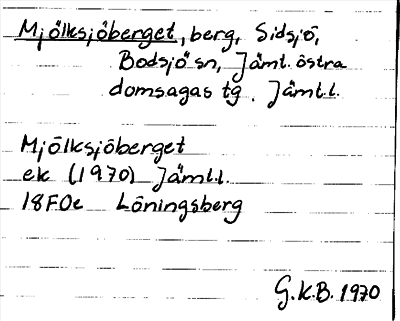 Mjölksjöberget, berg, Sidsjö,
Bodsjö sn, Jämt. östra
domsagas tg. Jämt.l.
Mjölksjöberget
ek (1970) Jämt.l.
18F0e Löningsberg
G.K.B. 1970